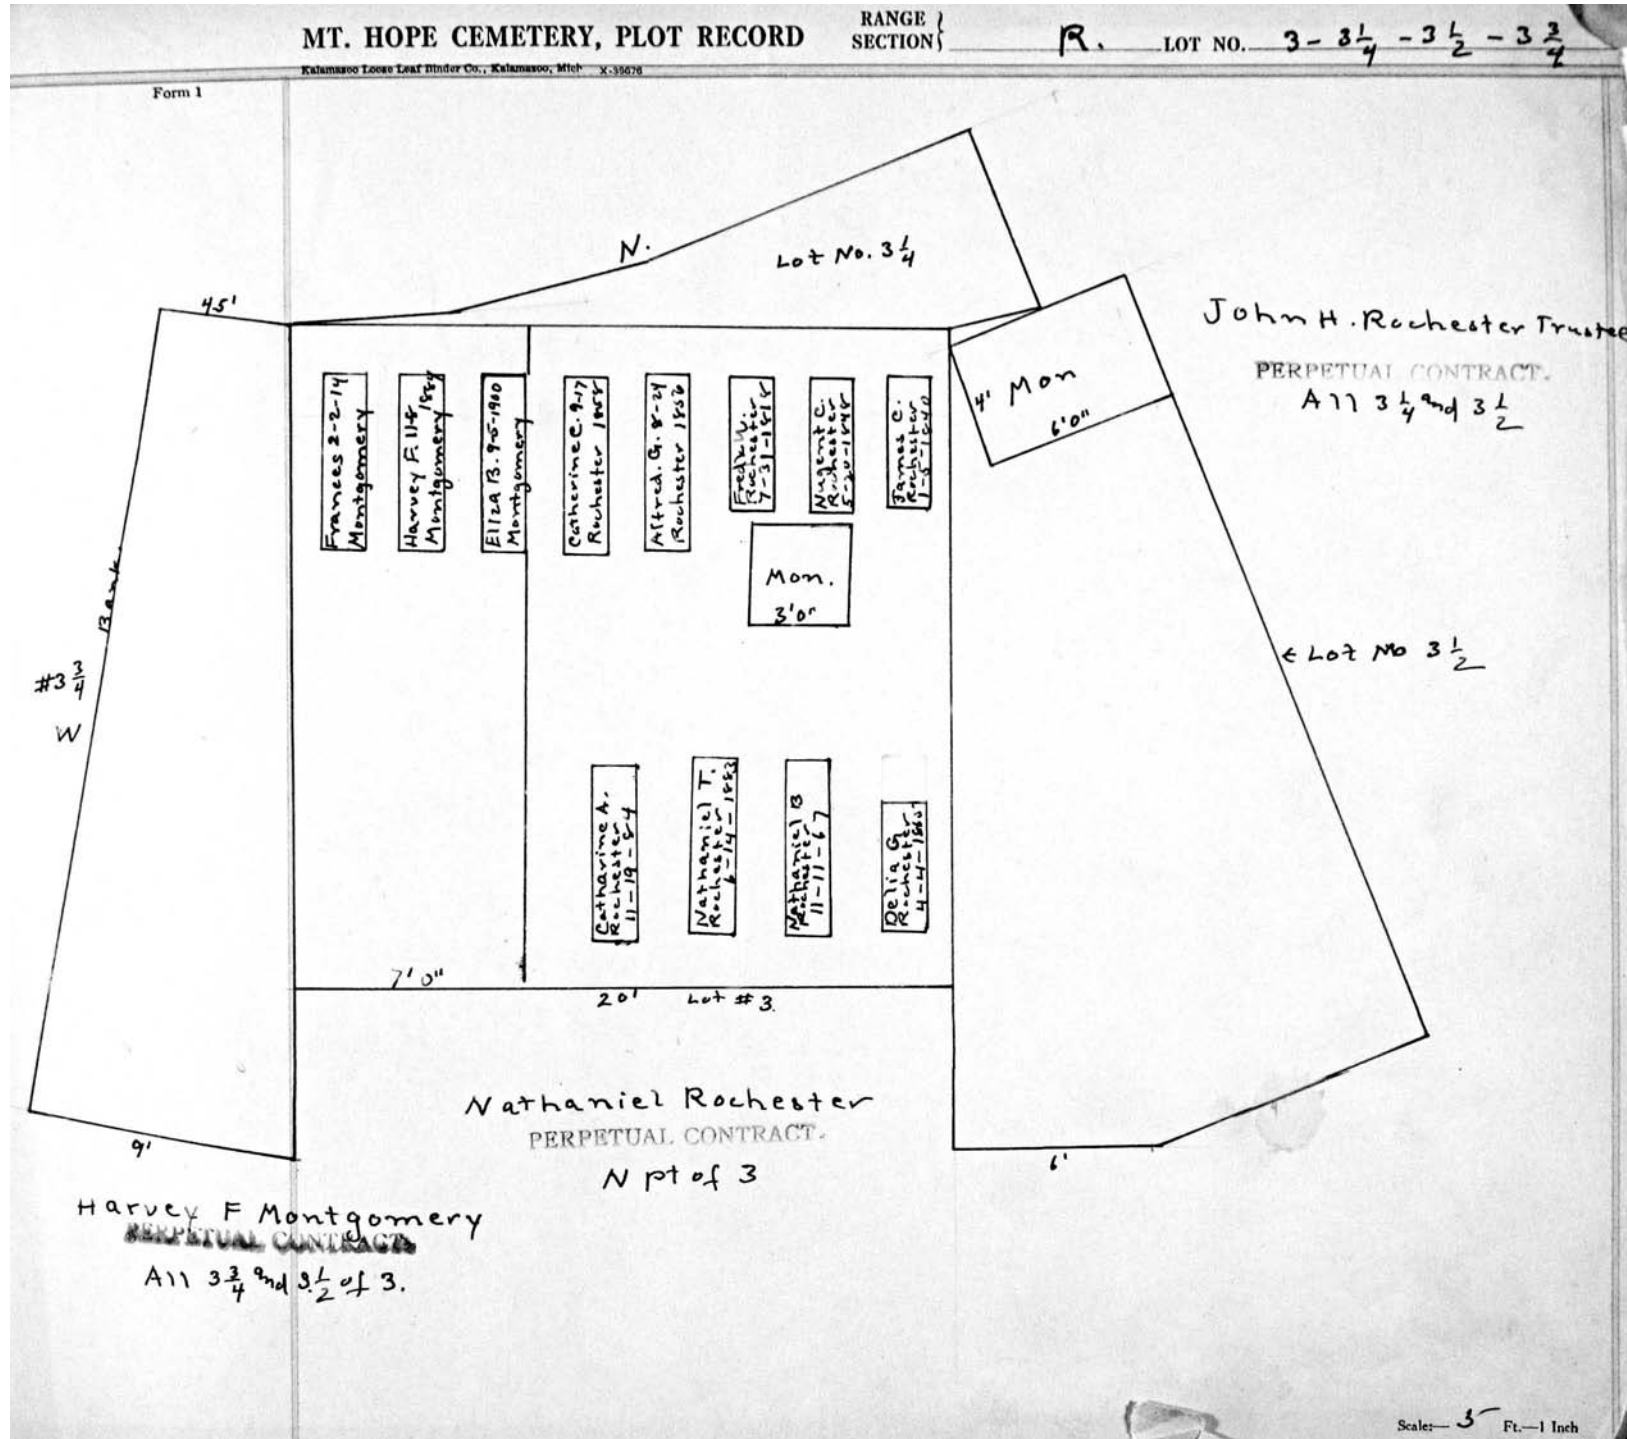 MT. HOPE CEMETERY, PLOT RECORD
RANGE
SECTION
R.
LOT NO. 3 - 3 1/4 - 3 1/2 - 3 3/4
Kalamazoo Loose Leaf Binder Co., Kalamazoo, Mich X-39676
Form 1
N.
Lot No. 3 1/4
45'
John H. Rochester Trustee
PERPETUAL CONTRACT.
All 3 1/4 and 3 1/2
4' Mon
6'0"
Frances 2-2-14
Montgomery
Harvey F. 11-8
Montgomery 1884
Eliza B. 9-5-1900
Montgomery
Catherine C. 9-17
Rochester
Alfred. G. 8-24
Rochester
Rochester
7-31-1818
Nugent C.
Rochester
5-20-1848
James C.
Rochester
1-5-1840
Mon.
3'0"
Bank.
#3 3/4
W
← Lot No 3 1/2
Catharine A.
Rochester
11-19-84
Nathaniel T.
Rochester
6-14-1883
Nathaniel B
Rochester
11-11-67
Delia G
Rochester
4-4-
7'0"
20' Lot #3.
Nathaniel Rochester
PERPETUAL CONTRACT.
N pt of 3
9'
6'
Harvey F Montgomery
PERPETUAL CONTRACT
All 3 3/4 and of 3.
Scale:— 5 Ft.—1 Inch